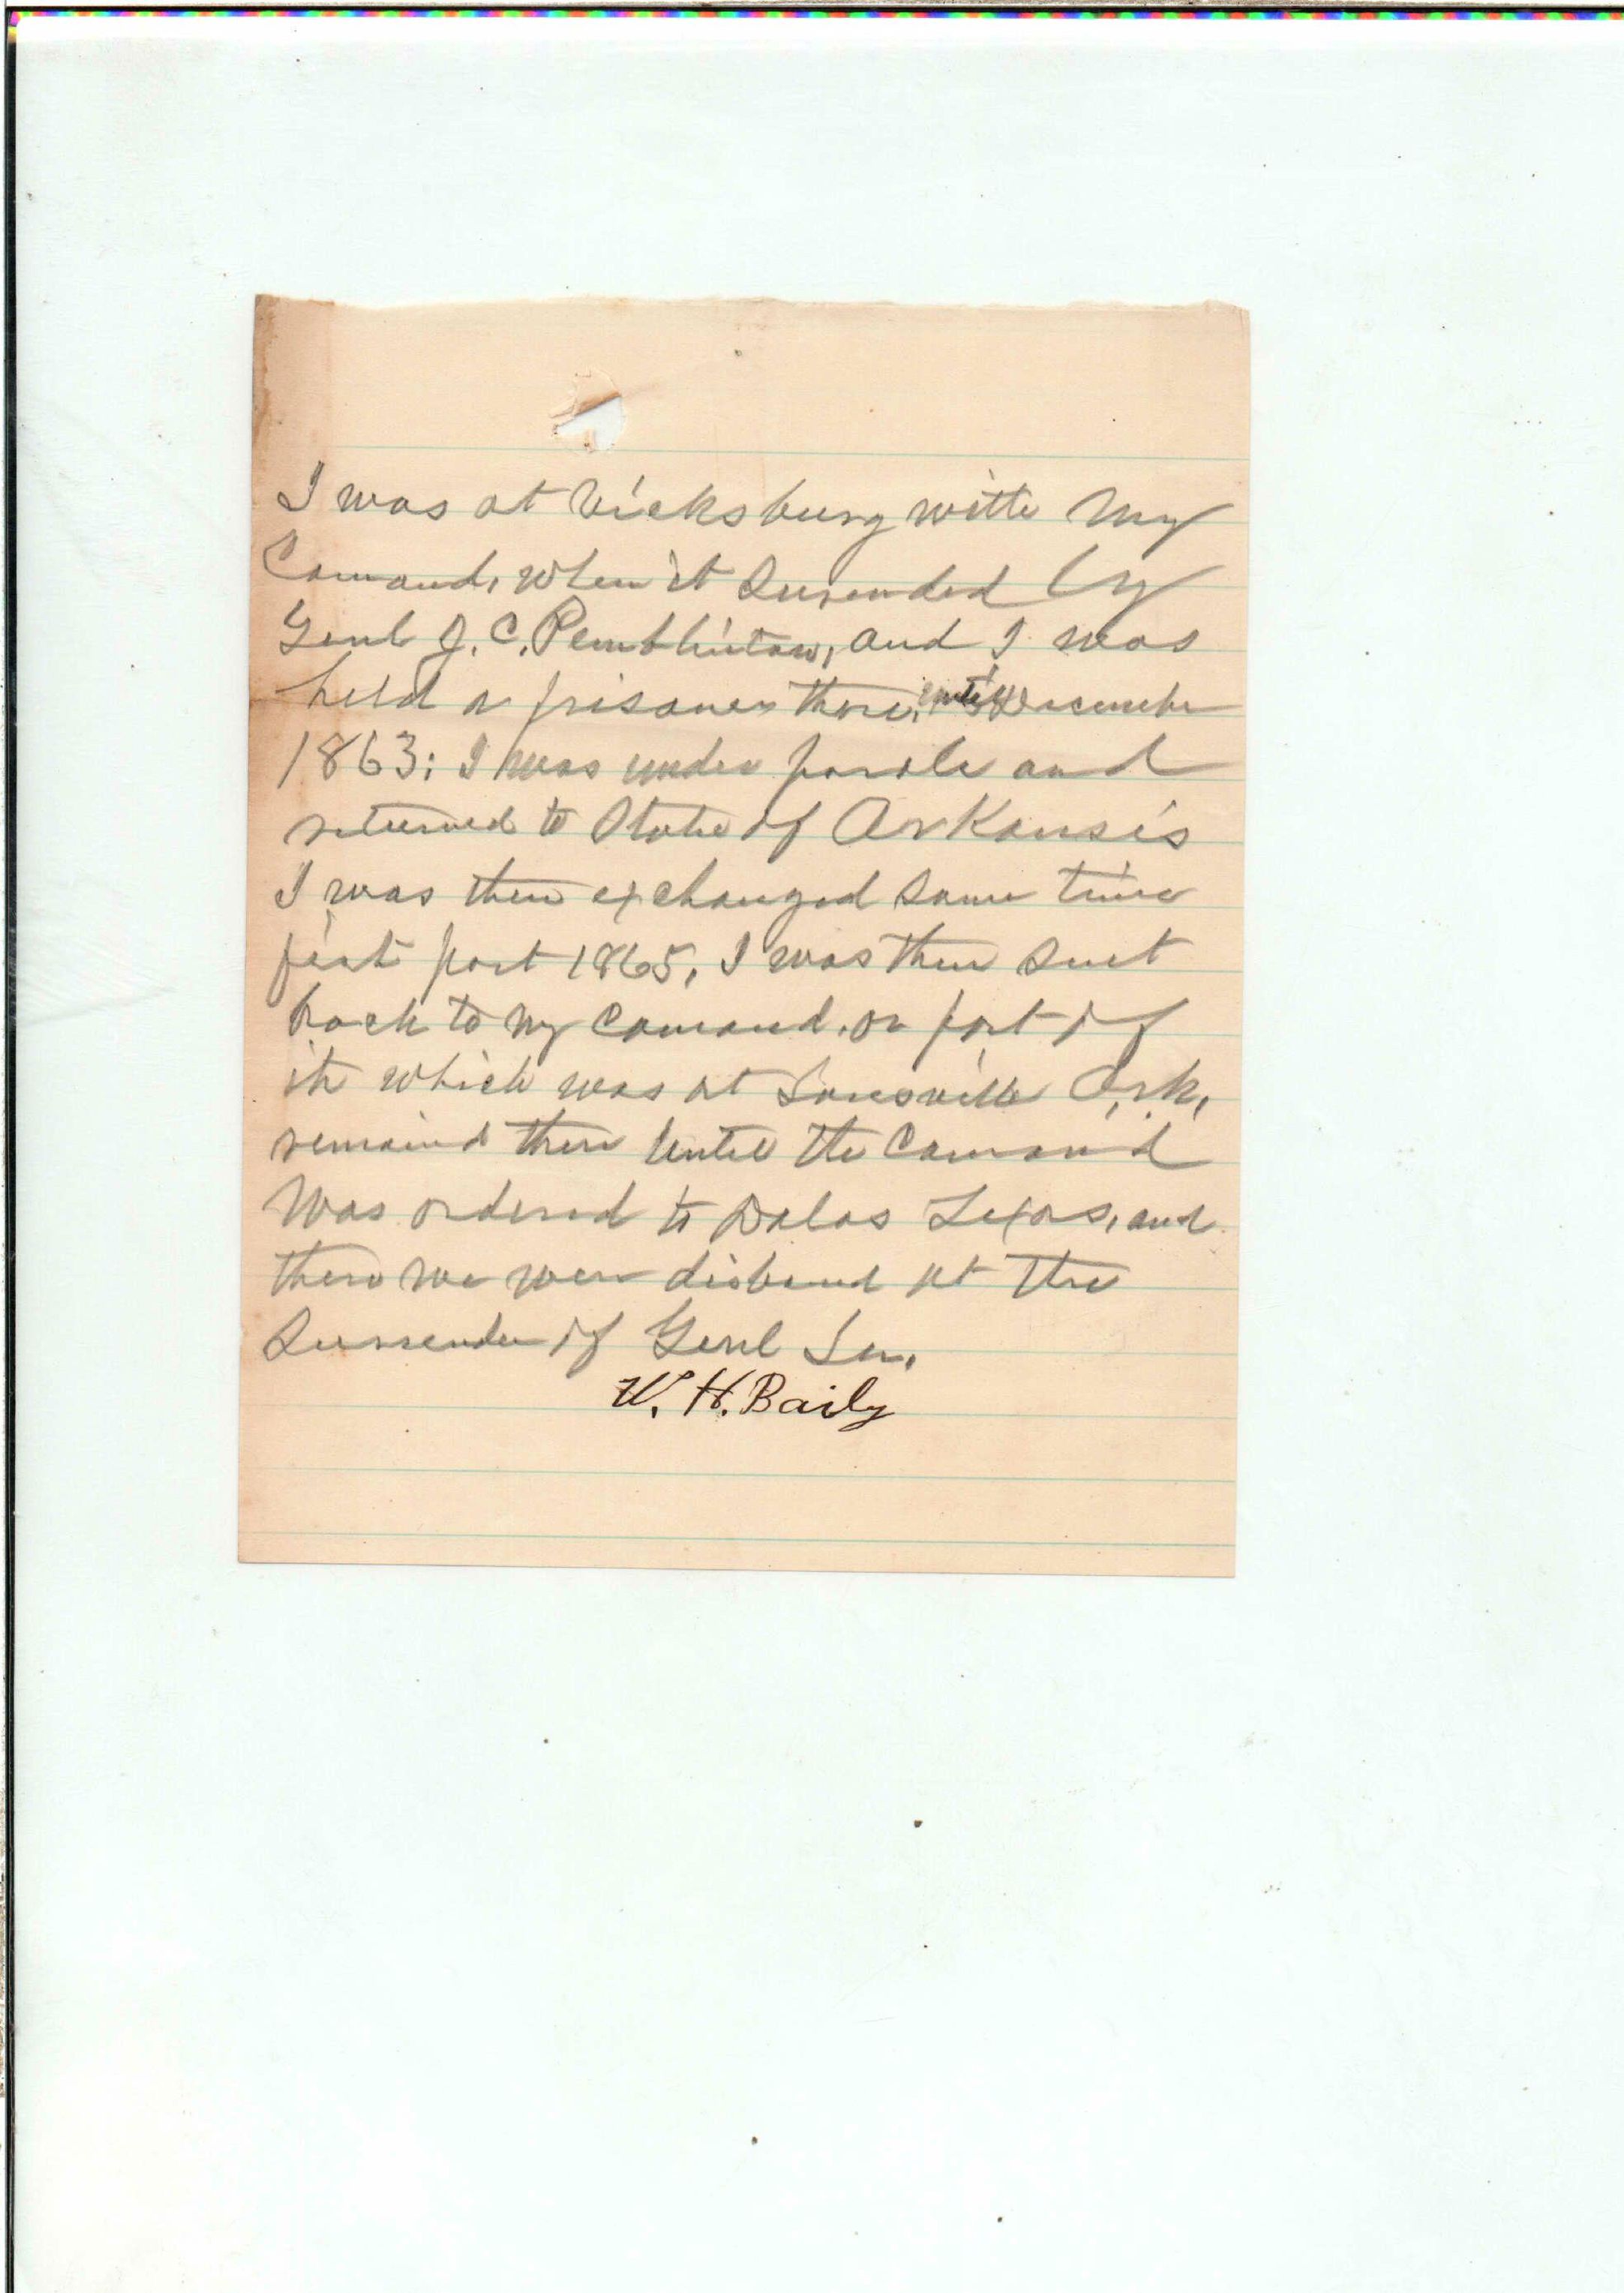 I was at Vicksburg with my
Comand, when it Surended by
Genl J. C. Pemblintow, and I was
held a prisoner there, until December
1863; I was under parole and
returned to State of Arkansis
I was then exchanged some time
first part 1865, I was then sent
back to my Comand. or part of
it which was at Lewisville Ark,
remaind there until the Comand
Was ordered to Dalas Texas, and
there we were disband at the
Surrender of Genl Lee.
W. H. Baily